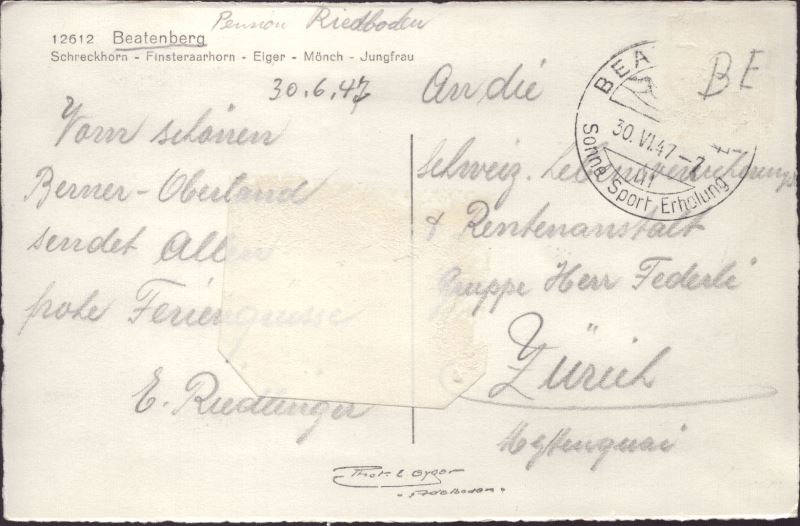 Pension Riedboden
12612 Beatenberg
Schreckhorn - Finsteraarhorn - Eiger - Mönch - Jungfrau
30.6.47
Vom schönen
Berner-Oberland
sendet Allen
frohe Feriengrüsse
E. Riedlinger
An die
Schweiz. Lebensversicherungs
& Rentenanstalt
Gruppe Herr Federli
Zürich
Mythenquai
BEA
30. VI. 47-7
Sonne Sport Erholung
BE
Phot. E. Gyger
Adelboden